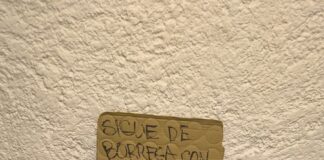 SIGUE DE
BORREGA CON